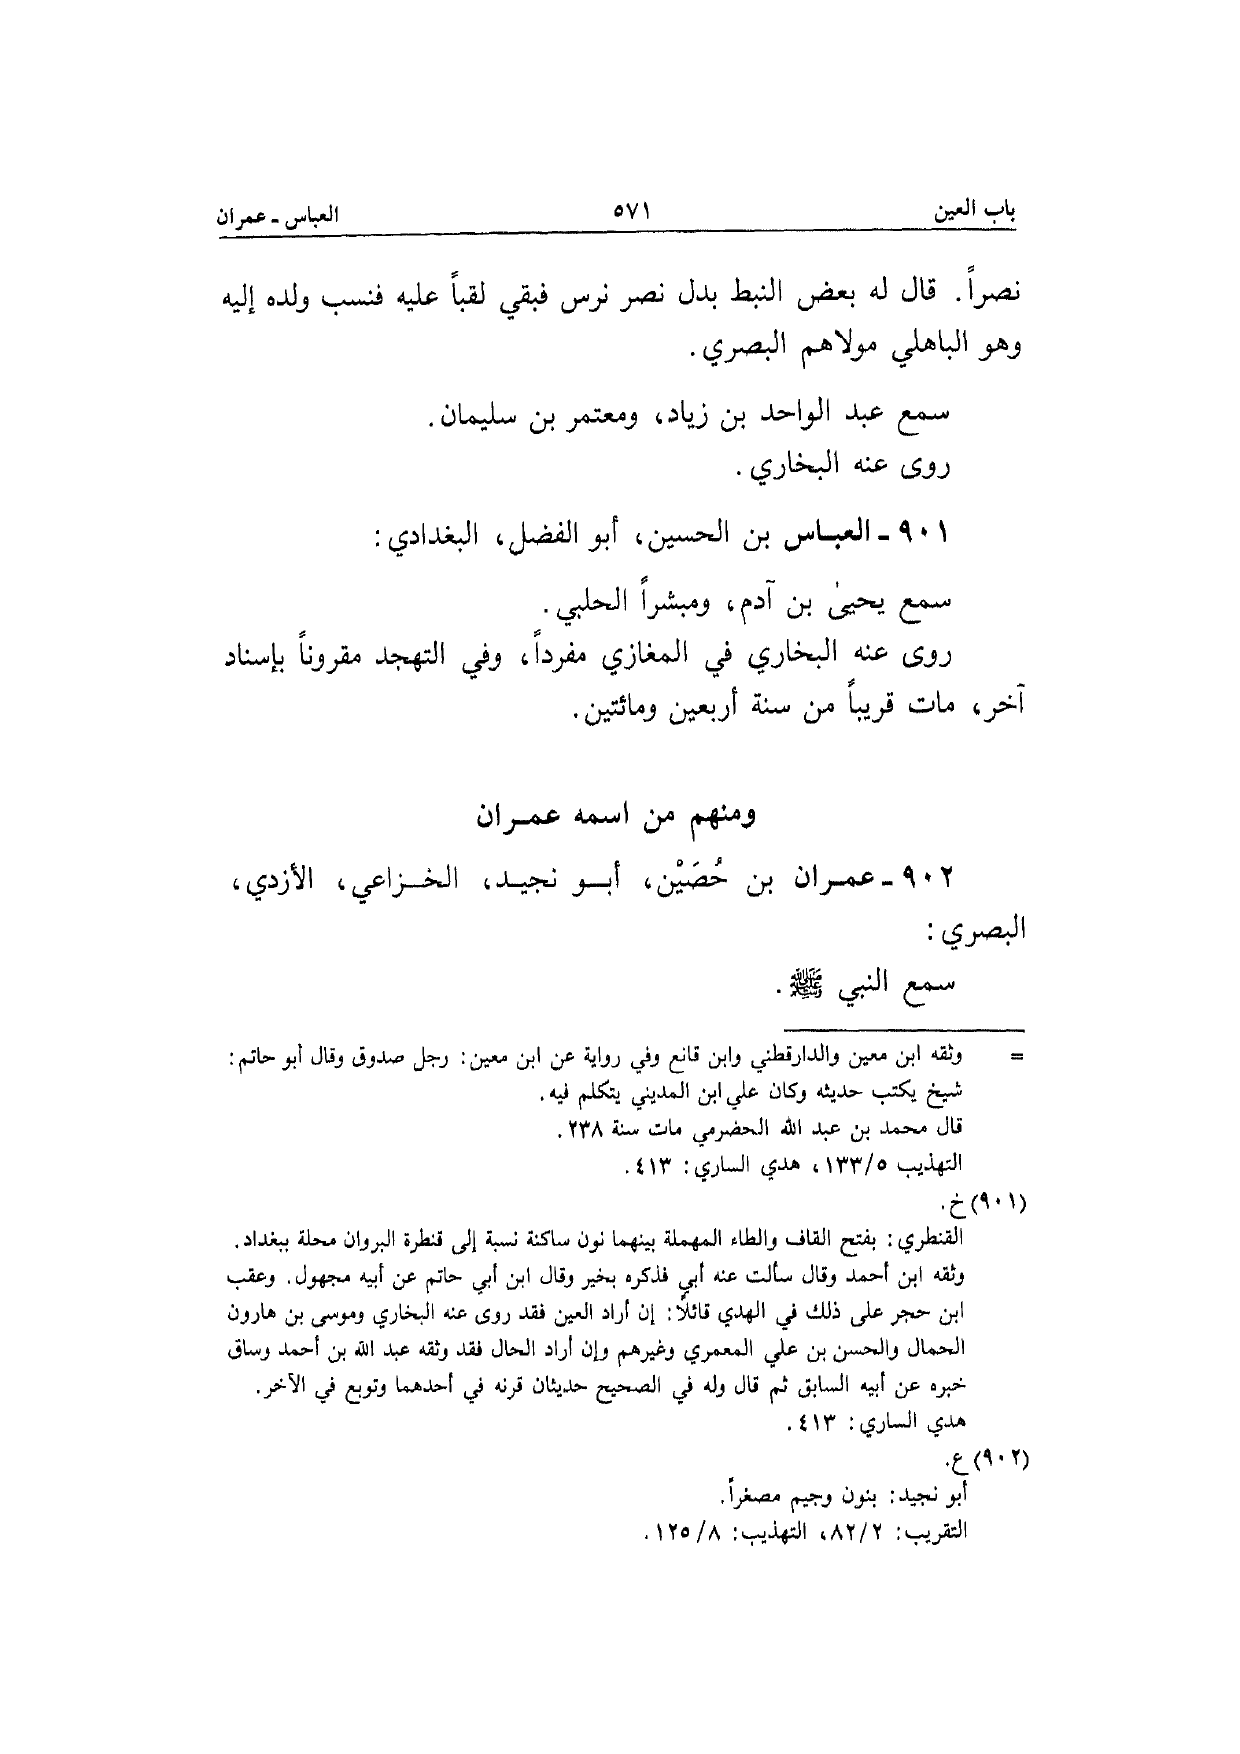 باب العين ٥٧١ العباس ـ عمران
نصراً. قال له بعض النبط بدل نصر نرس فبقي لقباً عليه فنسب ولده إليه
وهو الباهلي مولاهم البصري.
سمع عبد الواحد بن زياد، ومعتمر بن سليمان.
روى عنه البخاري.
٩٠١ ـ العباس بن الحسين، أبو الفضل، البغدادي:
سمع يحيىٰ بن آدم، ومبشراً الحلبي.
روى عنه البخاري في المغازي مفرداً، وفي التهجد مقروناً بإسناد
آخر، مات قريباً من سنة أربعين ومائتين.
ومنهم من اسمه عمـران
٩٠٢ ـ عمـران بن حُصَيْن، أبـو نجيـد، الخـزاعي، الأزدي،
البصري:
سمع النبي ﷺ.
= وثقه ابن معين والدارقطني وابن قانع وفي رواية عن ابن معين: رجل صدوق وقال أبو حاتم:
شيخ يكتب حديثه وكان علي ابن المديني يتكلم فيه.
قال محمد بن عبد الله الحضرمي مات سنة ٢٣٨.
التهذيب ١٣٣/٥، هدي الساري: ٤١٣.
(٩٠١) خ.
القنطري: بفتح القاف والطاء المهملة بينهما نون ساكنة نسبة إلى قنطرة البروان محلة ببغداد.
وثقه ابن أحمد وقال سألت عنه أبي فذكره بخير وقال ابن أبي حاتم عن أبيه مجهول. وعقب
ابن حجر على ذلك في الهدي قائلاً: إن أراد العين فقد روى عنه البخاري وموسى بن هارون
الحمال والحسن بن علي المعمري وغيرهم وإن أراد الحال فقد وثقه عبد الله بن أحمد وساق
خبره عن أبيه السابق ثم قال وله في الصحيح حديثان قرنه في أحدهما وتوبع في الآخر.
هدي الساري: ٤١٣.
(٩٠٢) ع.
أبو نجيد: بنون وجيم مصغراً.
التقريب: ٨٢/٢، التهذيب: ١٢٥/٨.